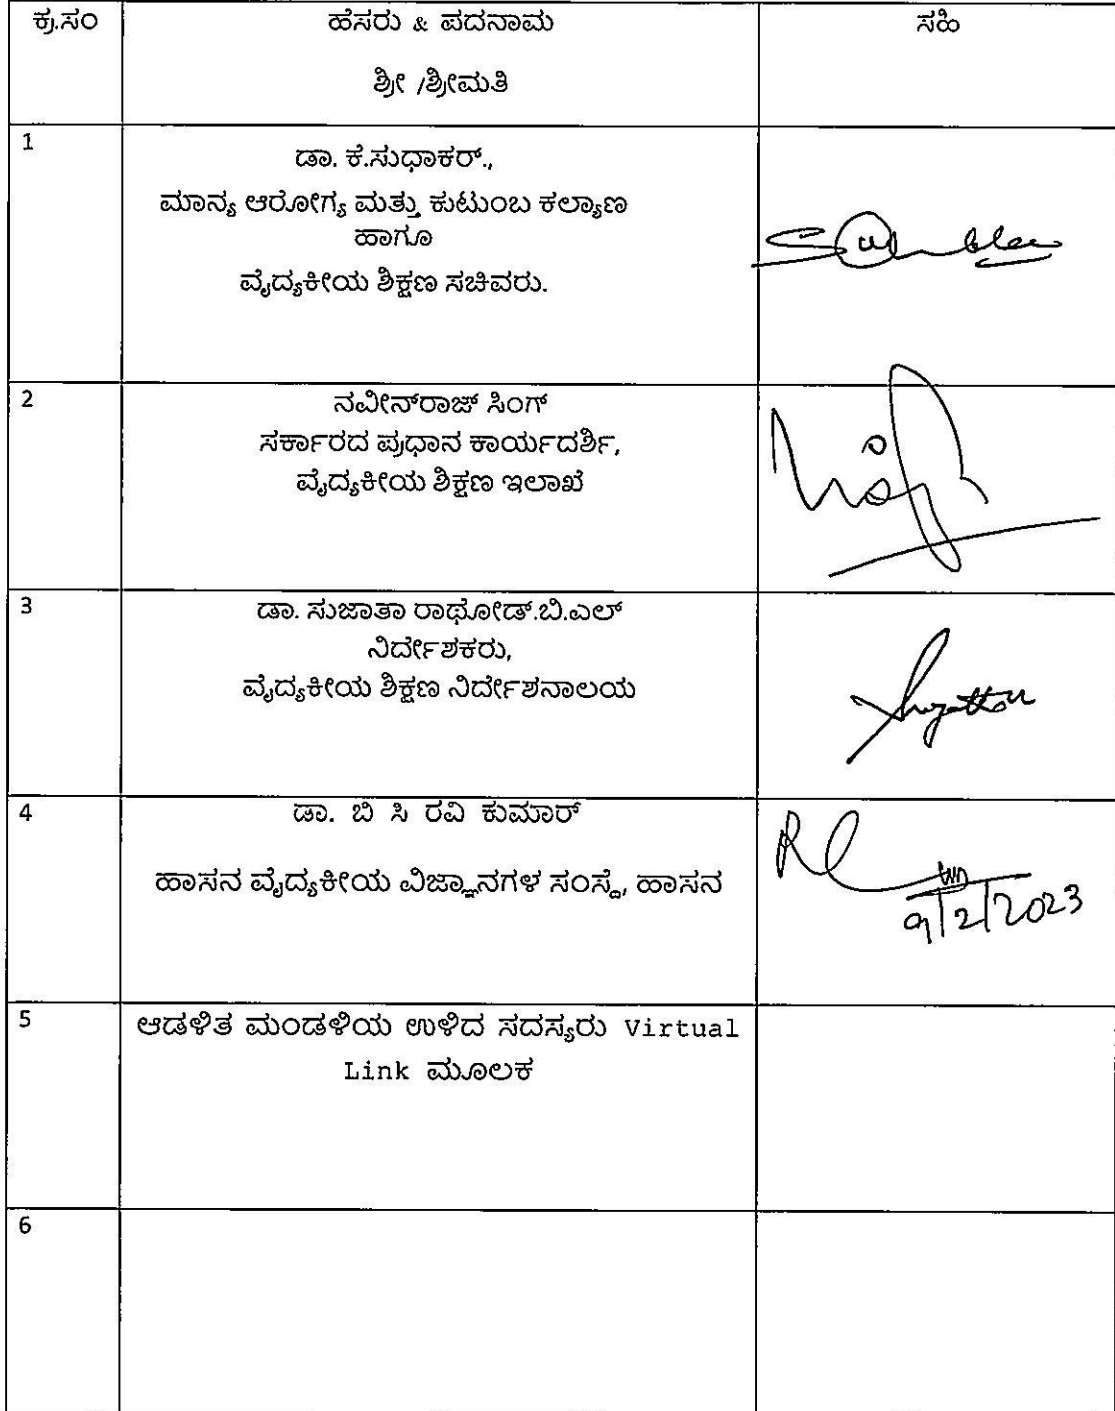 ಕ್ರ.ಸಂ ಹೆಸರು & ಪದನಾಮ ಸಹಿ
ಶ್ರೀ /ಶ್ರೀಮತಿ
1 ಡಾ. ಕೆ.ಸುಧಾಕರ್.,
ಮಾನ್ಯ ಆರೋಗ್ಯ ಮತ್ತು ಕುಟುಂಬ ಕಲ್ಯಾಣ
ಹಾಗೂ
ವೈದ್ಯಕೀಯ ಶಿಕ್ಷಣ ಸಚಿವರು.
2 ನವೀನ್‌ರಾಜ್ ಸಿಂಗ್
ಸರ್ಕಾರದ ಪ್ರಧಾನ ಕಾರ್ಯದರ್ಶಿ,
ವೈದ್ಯಕೀಯ ಶಿಕ್ಷಣ ಇಲಾಖೆ
3 ಡಾ. ಸುಜಾತಾ ರಾಥೋಡ್.ಬಿ.ಎಲ್
ನಿರ್ದೇಶಕರು,
ವೈದ್ಯಕೀಯ ಶಿಕ್ಷಣ ನಿರ್ದೇಶನಾಲಯ
4 ಡಾ. ಬಿ ಸಿ ರವಿ ಕುಮಾರ್
ಹಾಸನ ವೈದ್ಯಕೀಯ ವಿಜ್ಞಾನಗಳ ಸಂಸ್ಥೆ, ಹಾಸನ
9/2/2023
5 ಆಡಳಿತ ಮಂಡಳಿಯ ಉಳಿದ ಸದಸ್ಯರು Virtual
Link ಮೂಲಕ
6